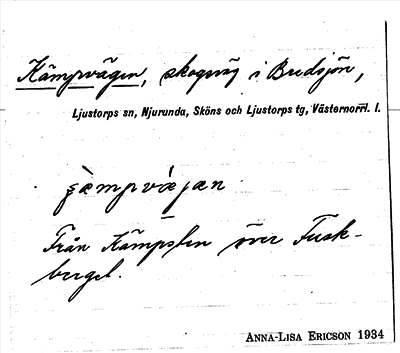 Kämpvägen, skogsväg i Bredsjön,
Ljustorps sn, Njurunda, Sköns och Ljustorps tg, Västernorrl. l.
Från Kämpsten över Fusk-
berget.
ANNA-LISA ERICSON 1934